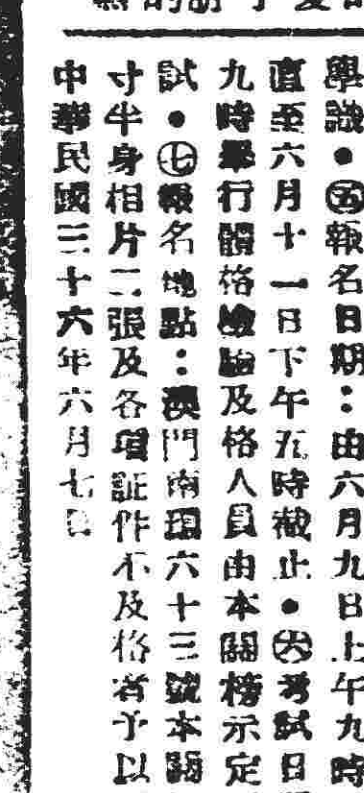 學識•㊄報名日期:由六月九日上午九時
直至六月十一日下午五時截止•㊅考試日
九時舉行體格檢驗及格人員由本關榜示定
試•㊆報名地點:澳門南環六十三號本關
寸半身相片二張及各項証件不及格者予以
中華民國三十六年六月七